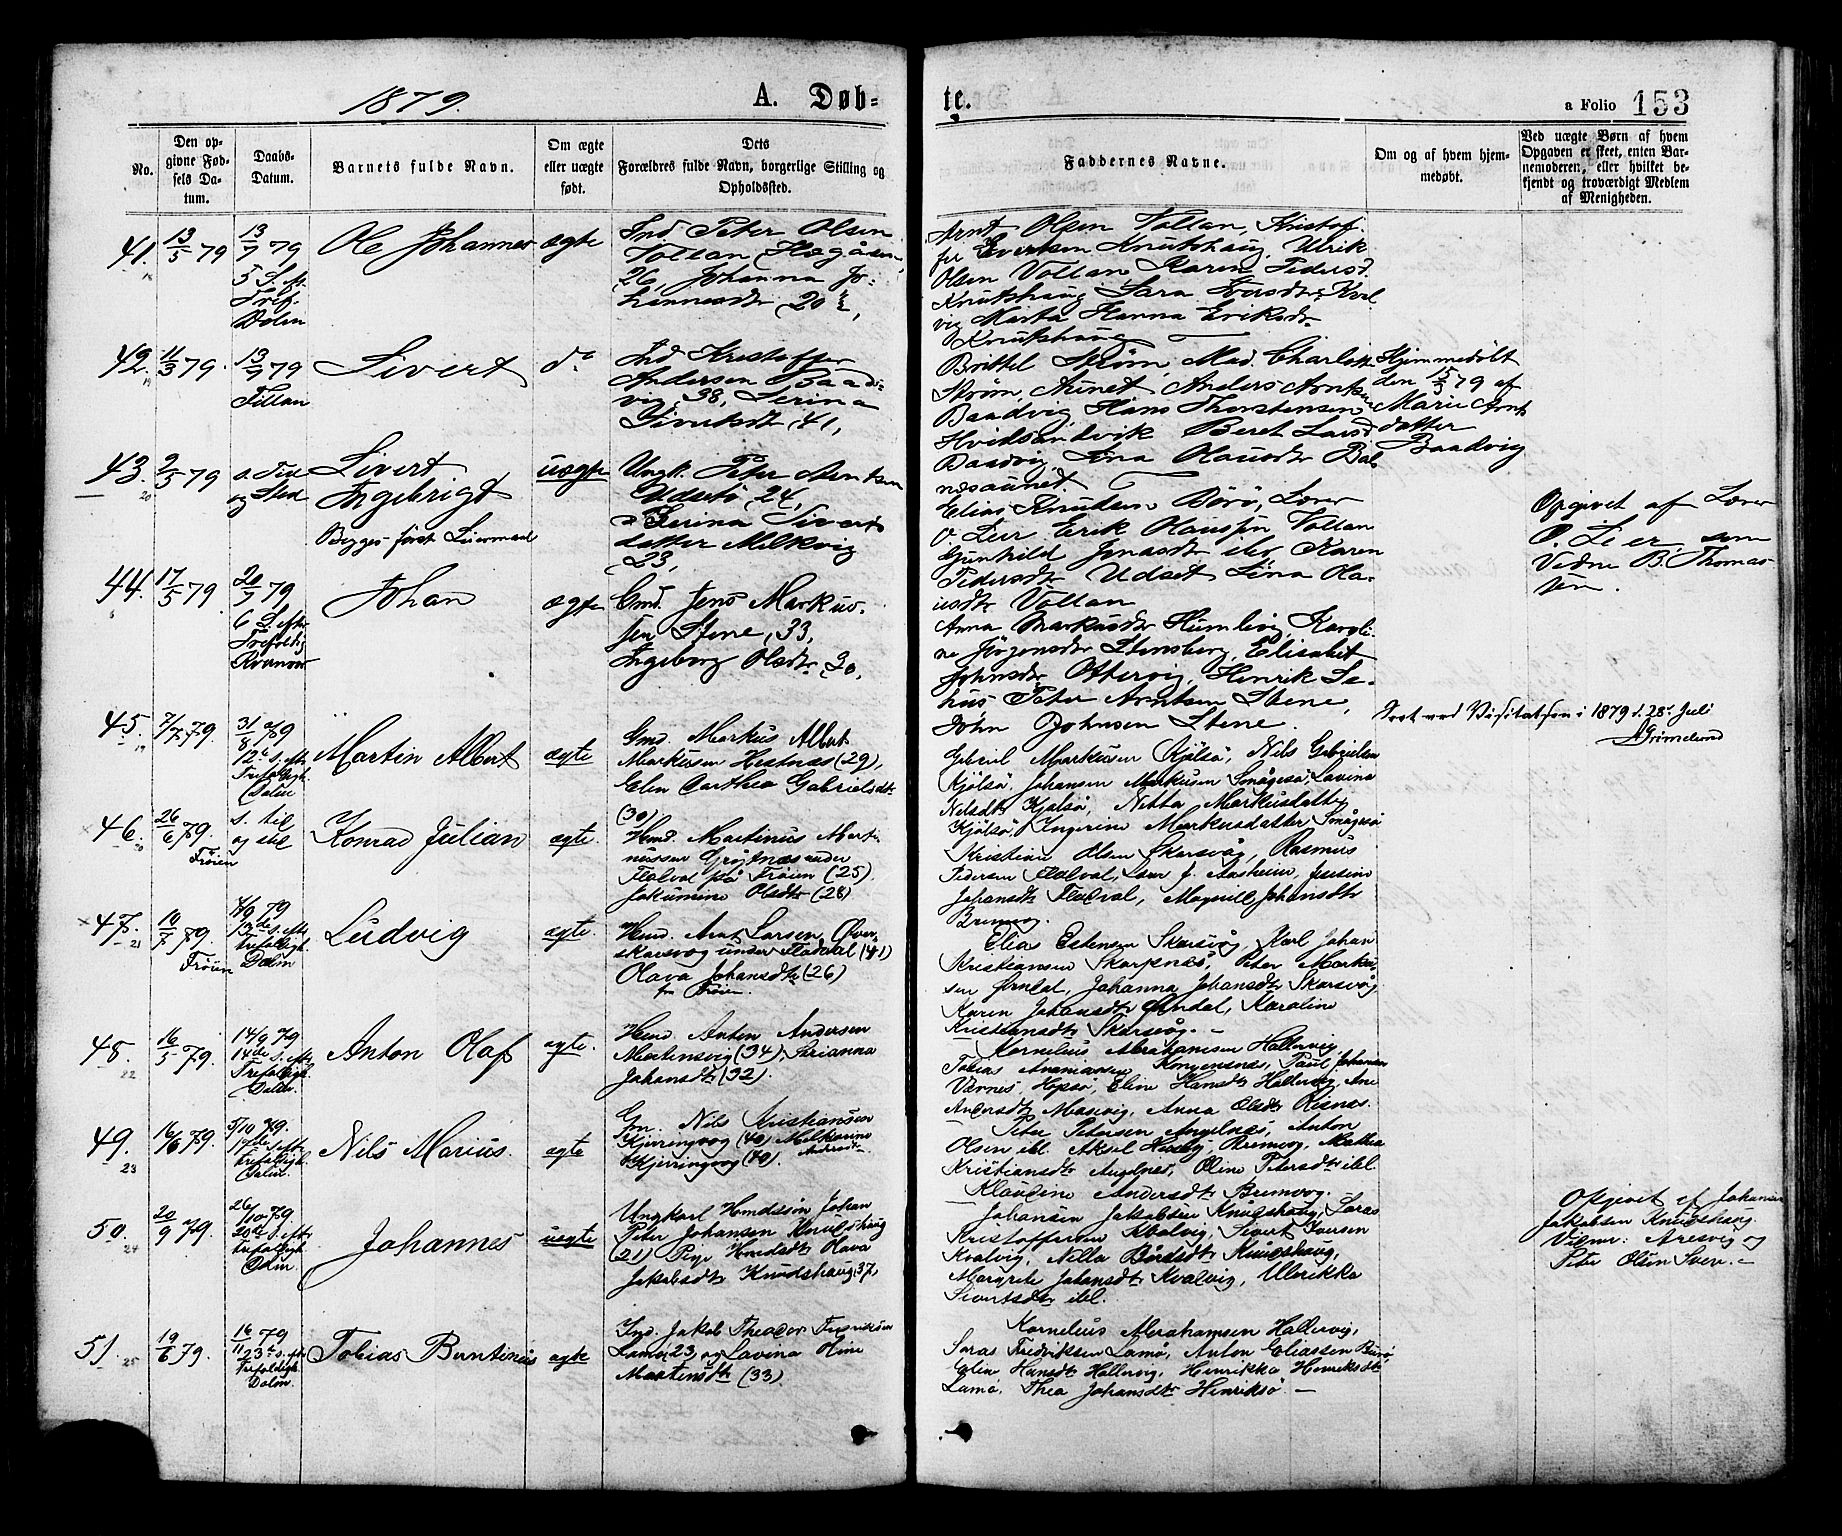 1879.
A. Døb-
te.
a Folio 153
No.
Den op-
givne Fød-
sels Da-
tum.
Daabs-
Datum.
Barnets fulde Navn.
Om ægte
eller uægte
født.
Dets
Forældres fulde Navn, borgerlige Stilling og
Opholdssted.
Faddernes Navne.
Om og af hvem hjem-
medøbt.
Ved uægte Børn af hvem
Opgaven er skeet, enten Bar-
nemoderen, eller hvilket be-
kjendt og troværdigt Medlem
af Menigheden.
41. 13/5 79
13/7 79
5 S. eft.
Tref.
Dolm
Ole Johannes
ægte
Ind Peter Olsen
Voltan
26, Johanna Jo-
hannesdtr (20
Arnt Olsen Voltan, Kristof-
fer Evertsen Knutshaug, Ulrik
Olsen Voltan Karen Pedersd.
Knutshaug Sara Iversdtr Kval
vig Marta Hanna Eriksdtr.
Knutshaug
42. 11/3 79.
13/7 79
Fillan
Sivert
do
Ind Kristoffer
Andersen Baad-
vig 38, Serina
Sivertsdtr (41,
Brittel Strøm, Mad. Charlotte
Strøm, Aunet, Anders Arntsen
Baadvig Hans Thorstensen
Hvidsandvik Beret Larsd
Baadvig Lina Olausdtr Bal
næsaunet
Hjemmedøbt
den 15/3 79 af
Marie Arnts
datter
Baadvig
43. 2/5 79
s. Tid
og Sted
Sivert
Ingebrigt
Begges først Leiermaal
uægte
Ungk. Peter Arntsen
Udset 24,
Serina Siverts
datter Melkvig
(23,
Elias Knutsen Børø, Lærer
O. Leer Erik Olaussen Voltan
Gunhild Jonasdtr Karen
Pedersdtr Udset Lina Ola-
usdtr Voltan
Opgivet af Lærer
O. Leer som
Vidne B. Thomas-
sen.
44. 17/5 79
20/7 79
6 S. eft.
Trefoldig
Kvenvær
Johan
ægte
Gmd. Jens Markus-
sen Stene, 33,
Ingeborg Olsdtr. 30,
Anna Markusdtr Humlvig Karoli-
ne Jörgensdtr Stensberg, Elisabet
Johnsdtr Ottervig, Henrik Se-
hus Peter Arntsen Stene,
John Johnsen Stene.
Seet ved Visitatsen i 1879 d. 28. Juli
AGrimelund
45. 7/7 79
31/8 79
12te S. eft.
Trefoldigh.
Dolm
Martin Albert
ægte
Gmd. Markus Albert
Markusen Hestnæs (29),
Elen Carthea Gabrielsdtr
(30)
Gabriel Markusen Kjölsö, Nils Gabrielsen
Kjölsö, Johansen Markusen Smågesö, Lavina
Nilsdtr Kjölsö, Nikka Markusdatter
Kjölsö, Ingerine Markusdatter Smågesö
46. 26/6 79.
Fröien
s. tid
og sted
Konrad Julian
ægte
Hmd. Martinus Marti-
nussen Gröftnæs under
Fladval på Fröien (25)
Jakumine Olsdtr (28)
Kristian Olsen Skarsvåg, Rasmus
Pedersen Fladval, Lars J. Aasheim, Jensine
Johansdtr Fladval, Magnill Johansdtr
Bremvog.
47. 10/7 79.
Fröien
7/9 79
13de S. eft.
Trefoldigh.
Dolm
Ludvig
ægte.
Hmd. Arnt Larsen Över-
skarsvog under Fladval (41)
Olava Johansdtr (26)
fra Fröien.
Elias Estensen Skarsvåg, Karl Johan
Kristiansen Skarpnes, Peter Marku-
sen Örndal, Johanna Johansdtr Skarsvåg,
Karen Johansdtr Örndal, Karoline
Kristiansdtr Skarsvåg. —
48. 16/5 79.
14/9 79
14de S. eft.
Trefoldigh.
Dolm
Anton Olaf
ægte.
Hmd Anton Andersen
Mortensvig (34), Arianna
Johansdtr (32).
Kornelius Abrahamsen Hallervig
Tobias Kongensvog, Paul Johansen
Værnes, Hopsö, Eline Hansdtr Hallervig, Ane
Andersdtr Masvig, Anna Olsdtr Risnes.
49. 16/6 79.
5/10 79.
17de S. eft.
Trefoldigh.
Dolm
Nils Marius.
ægte
Gm. Nils Kristiansen
Kjerringvog (40) Milkarine
Andersdtr
Kjerringvog (40).
Peter Petersen Angelnes, Anton
Olsen ibl. Aksel Huseby, Bremvog, Mattea
Kristiansdtr Angelnes, Oline Petersdtr ibl.
Klaudine Andersdtr Bremvog.
50. 20/9 79.
26/10 79
20de S. eft.
Trefoldigh.
Dolm
Johannes
uægte
Ungkarl Hmdssön Johan
Peter Johansen Knudshaug
(21) Pige Hmdsdtr Olava
Jakobsdtr Knudshaug 37,
Johansen Jakobsen Knudshaug, Laras
Kristoffersen Kvalvig, Sivert Iversen
Kvalvig, Nella Bårdsdtr Knudshaug,
Margrete Johansdtr Kvalvig, Ulrikka
Sivertsdtr ibl.
Opgivet af Johansen
Jakobsen Knudshaug
Vidner: Aresvig og
Peter Olsen Sven. —
51. 19/6 79.
16/11 79
23de S. eft.
Trefoldigh.
Dolm.
Tobias Berntinus
ægte
Ind. Jakob Theodor Fredriksen
Lamö (23) og Lavina Oline
Mortensdtr (33)
Kornelius Abrahamsen Hallervig,
Laras Fredriksen Lamö, Anton Eliassen Börö
Elen Hansdtr Hallervig, Henrikka Henriksdtr
Lamö, Thea Johansdtr Henriksö. —